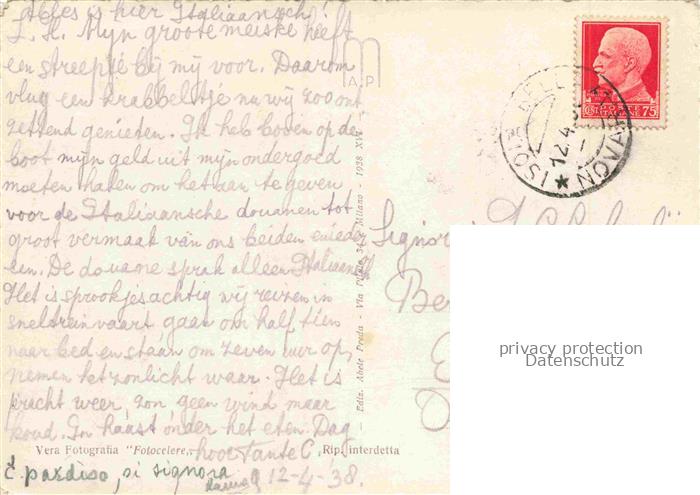 Alles is hier Italiaansch!
L. H. Mijn groote meiske heeft
een streepje bij mij voor. Daarom
vlug een krabbeltje nu wij zoo ont
zettend genieten. Ik heb boven op de
boot mijn geld uit mijn ondergoed
moeten halen om het aan te geven
voor de Italiaansche douanen tot
groot vermaak van ons beiden en ieder
een. De douane sprak alleen Italiaansch
Het is sprookjesachtig wij reizen in
sneltreinvaart gaan om half tien
naar bed en staan om zeven uur op,
nemen het zonlicht waar. Het is
pracht weer, zon geen wind maar
koud. In haast onder het eten Dag
hoor Tante C.
Vera Fotografia "Fotocelere" Rip. interdetta
è paradiso, si signora
12-4-38.
M
A P
Ediz. Abele Preda - Via Plinio 34 - Milano - 1938 XVI
POSTE ITALIANE 75
ISOLA BELLA
NOVARA
12.4.38
Signor
Be
privacy protection
Datenschutz